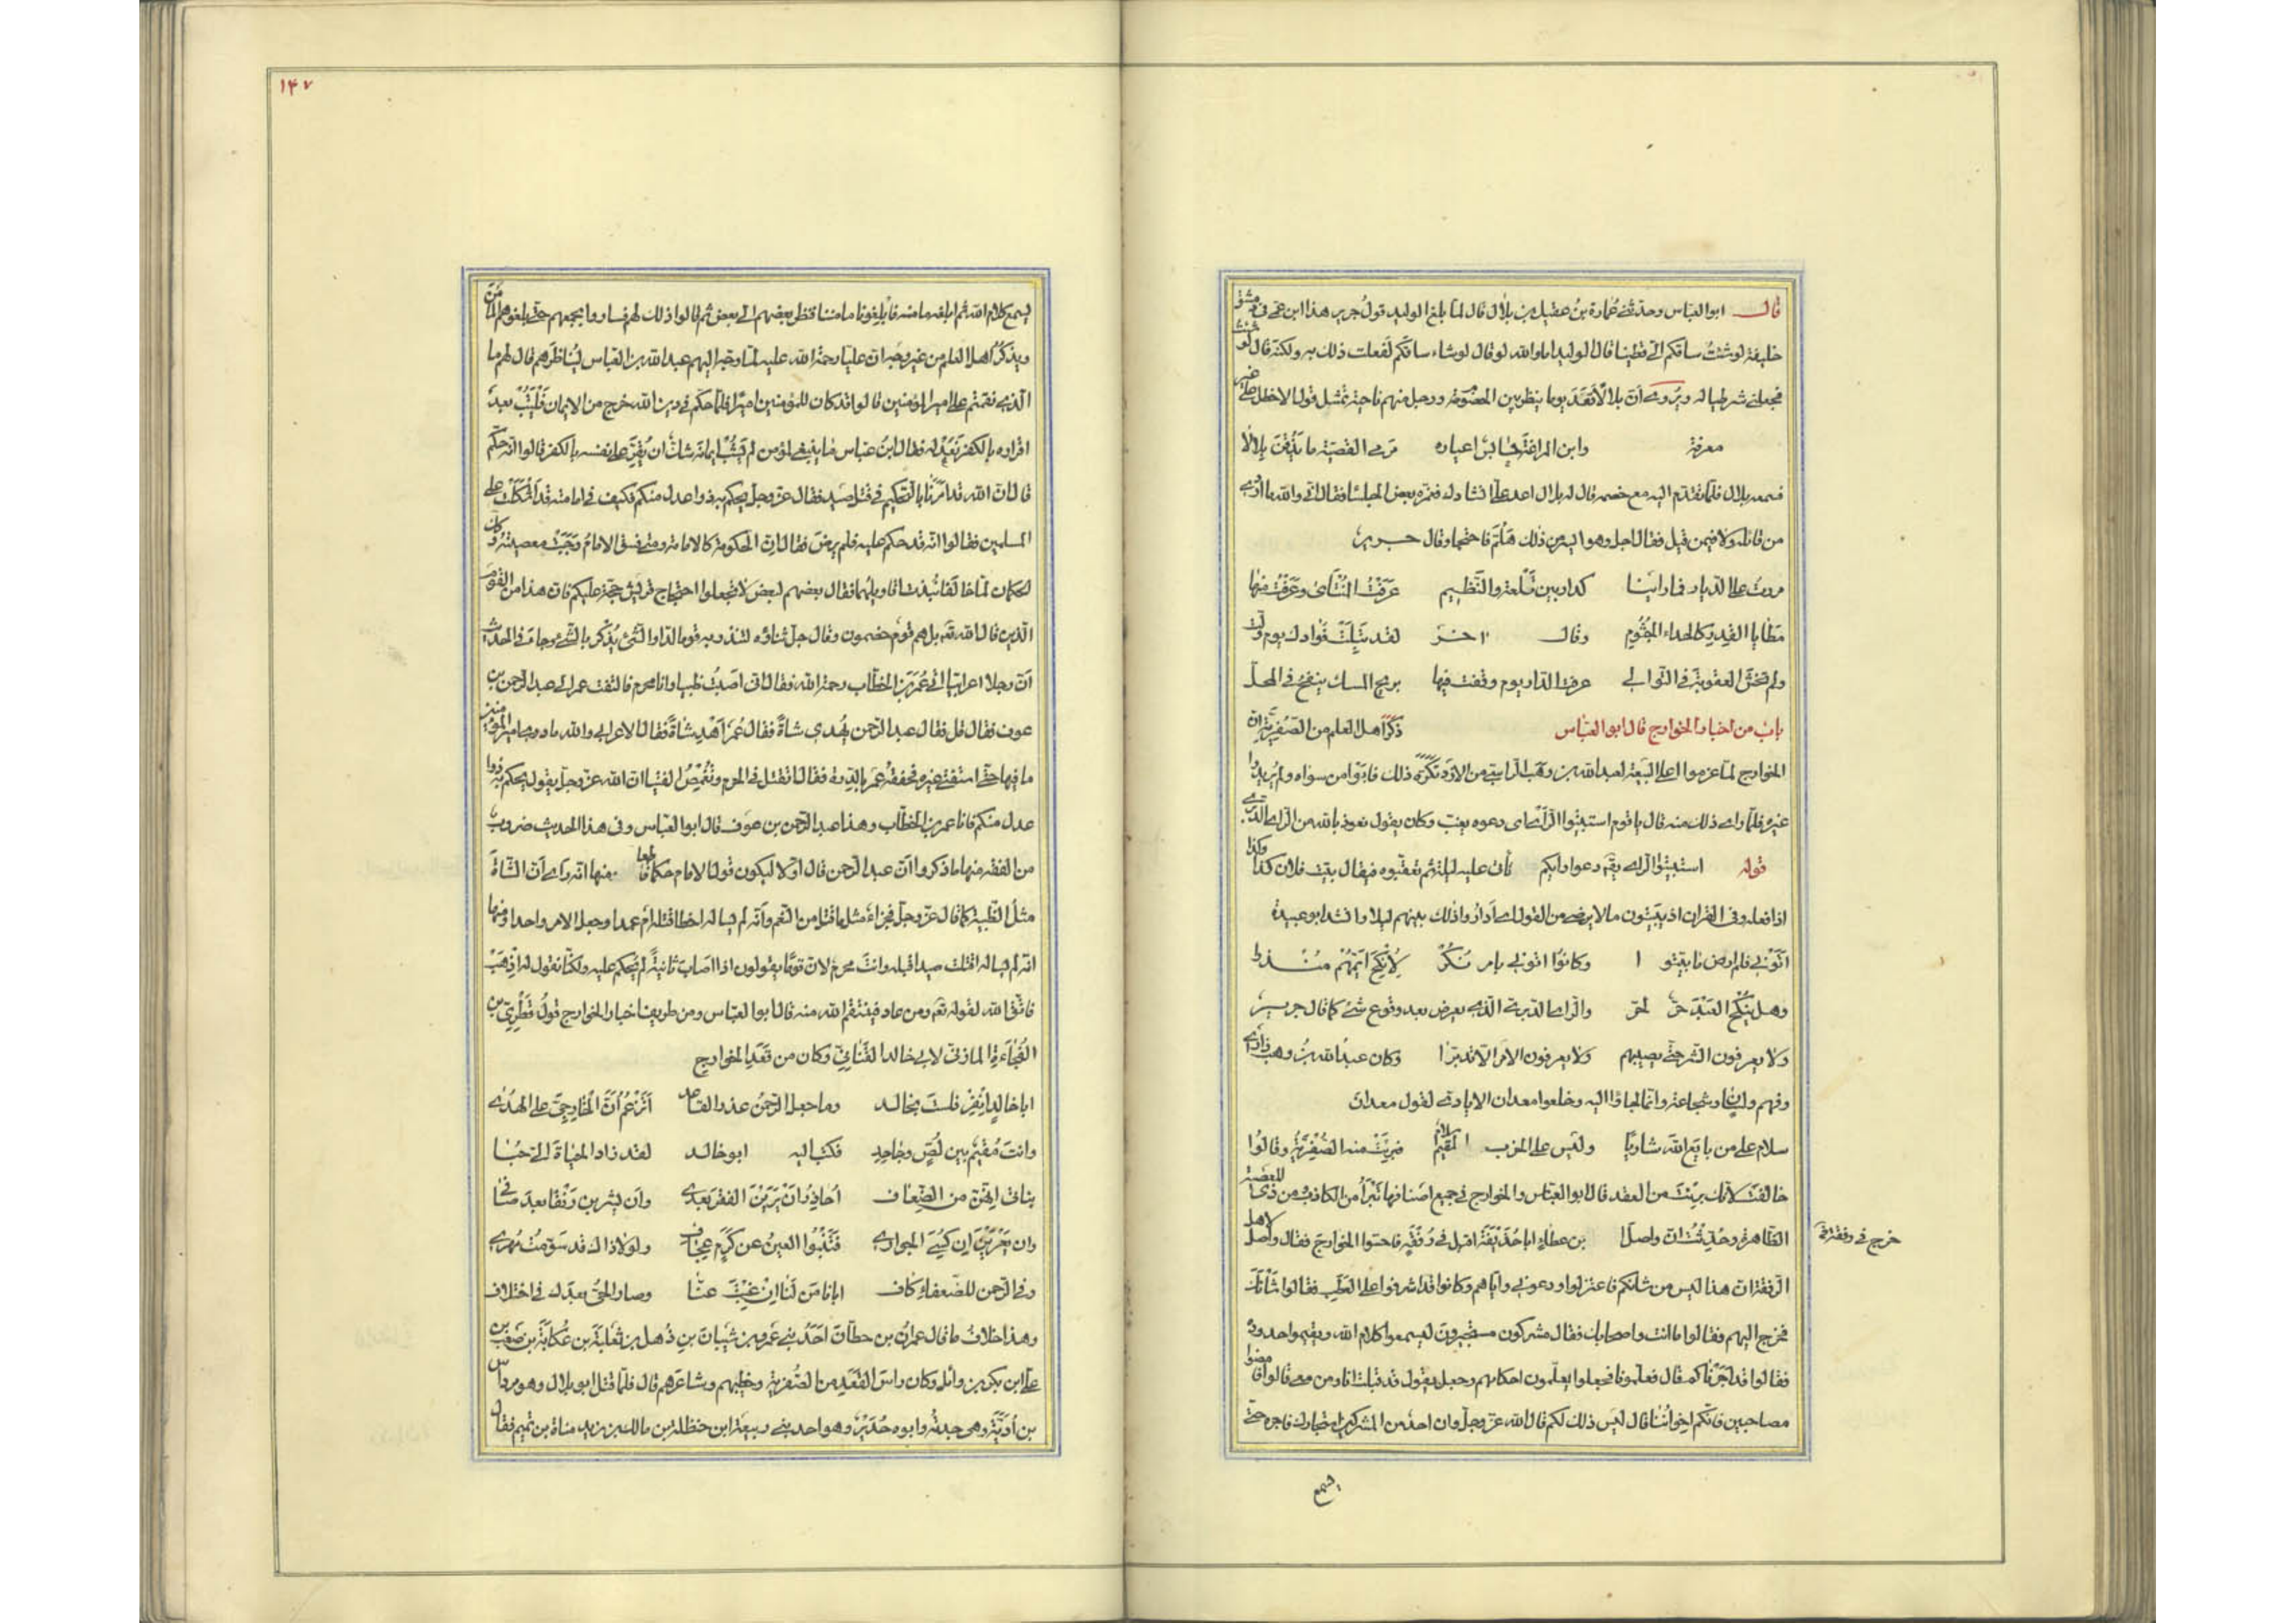 قال ابو العباس وحدثنى عمارة بن عقيل بن بلال قال لما بلغ الوليد قول جرير هذا ابن عمى فى دمشق
خليفة لو شئت ساقكم الى قطينا قال الوليد اما والله لو قال لو شاء ساقكم لفعلت ذلك به ولكنه قال لو شئت
فجعلنى شرطيا له ويروى أن بلالا قعد يوما ينظر بين الخصوم ورجل منهم ناحية يتمثل قول الاخطل على غير
معرفة وابن المراغة حابس اعياره مرمى القصية ما يذقن بلالا
فسمعه بلال فلما تقدم اليه مع خصمه قال له بلال اعد علىّ انشادك فغمزه بعض الجلساء فقال انى والله ما ادرى
من قاله ولا فيمن قيل فقال اجل وهو اسير من ذلك هلم فاحتجا وقال جرير
مررت على الديار فما راينا كدار بين تلعة والنظيم عرفت المنتأى وعرفت منها
مطايا القدر كالحداء الجثوم وقال اخر لقد تبلت فؤادك يوم ولت
ولم تخش العقوبة فى التوالى عرفت الدار يوم وقفت فيها بريح المسك ينفح فى المحل
باب من اخبار الخوارج قال ابو العباس ذكر اهل العلم من الصفرية ان
الخوارج لما عزموا على البيعة لعبد الله بن وهب الراسبى من الازد تكره ذلك فابوا من سواه ولم يريدوا
غيره فلما راى ذلك منه قال يا قوم استبيتوا الراى اى دعوه يغب وكان يقول نعوذ بالله من الراى الدبرى
قوله استبيتوا الراى يقو دعوا رايكم تأت عليه ليلة ثم تعقبوه فيقال بيت فلان كذا وكذا
اذا فعله وفى القران اذ يبيتون ما لا يرضى من القول اى أداروا ذلك بينهم ليلا وانشد ابو عبيدة
اتونى فلم ارض ما بيتوا وكانوا اتونى بامر نكر لانكح ايمهم منذرا
وهل ينكح العبد حر لحر والراى الدبرى الذى يعرض بعد وقوع شئ كما قال جرير
ولا يعرفون الشر حتى يصيبهم ولا يعرفون الامر الا تدبرا وكان عبد الله بن وهب ذا راى
وفهم ولسان وشجاعة وانما لجاؤا اليه وخلعوا معدان الايادى لقول معدان
سلام على من بايع الله شاريا وليس على الحزب المقيم سلام فبرئت منه الصفرية وقالوا
خالفت لانك برئت من القعد قال ابو العباس والخوارج فى جميع اصنافها تبرأ من الكاذب ومن ذى المعصية
الظاهرة وحُدّثت ان واصل بن عطاء ابا حذيفة اقبل فى رفقة فاحسوا الخوارج فقال واصل لاهل
خرج فى رفقة
الرفقة ان هذا ليس من شانكم فاعتزلوا ودعونى واياهم وكانوا قد اشرفوا على العطب فقالوا شأنك
فخرج اليهم فقالوا ما انت واصحابك فقال مشركون مستجيرون ليسمعوا كلام الله ويقيموا حدوده
فقالوا قد اجرناكم قال فعلمونا فجعلوا يعلمون احكامهم وجعل يقول قد قبلت انا ومن معى قالوا فامضوا
مصاحبين فانكم اخواننا قال ليس ذلك لكم قال الله عز وجل وان احد من المشركين استجارك فاجره حتى
يسمع
١٤٧
يسمع كلام الله ثم ابلغه مامنه فأبلغونا مامننا فنظر بعضهم الى بعض ثم قالوا ذلك لهم فساروا بجمعهم حتى بلغوهم المأمن
ويذكر اهل العلم من غير وجه ان عليا رحمة الله عليه لما وجه اليهم عبد الله بن العباس ليناظرهم قال لهم ما
الذى نقمتم على امير المؤمنين قالوا قد كان للمؤمنين اميرا فلما حكم فى دين الله خرج من الايمان فليتب بعد
اقراره بالكفر نعد له فقال ابن عباس ما ينبغى لمؤمن لم يشب ايمانه شك ان يقر على نفسه بالكفر قالوا انه حكم
قال ان الله قد امرنا بالتحكيم فى قتل صيد فقال عز وجل يحكم به ذوا عدل منكم فكيف فى امامة قد اشكلت على
المسلمين فقالوا انه قد حكم عليه فلم يرض فقال ان الحكومة كالامامة ومتى فسق الامام وجبت معصيته وكذلك
الحكمان لما خالفا نبذت اقاويلهما فقال بعضهم لبعض لا تجعلوا احتجاج قريش حجة عليكم فان هذا من القوم
الذين قال الله فيهم بل هم قوم خصمون وقال جل ثناؤه لتنذر به قوما لدا والشئ يذكر بالشئ وجاء فى الحديث
أن رجلا اعرابيا اتى عمر بن الخطاب رحمة الله فقال انى اصبت ظبيا وانا محرم فالتفت عمر الى عبد الرحمن بن
عوف فقال قل فقال عبد الرحمن يهدى شاة فقال عمر اهد شاة فقال الاعرابى والله ما درى امير المؤمنين
ما فيها حتى استفتى غيره فخفقه عمر بالدرة فقال اتقتل فى الحرم وتغمص الفتيا ان الله عز وجل يقول يحكم به ذوا
عدل منكم فانا عمر بن الخطاب وهذا عبد الرحمن بن عوف قال ابو العباس وفى هذا الحديث ضروب
من الفقه منها ما ذكروا أن عبد الرحمن قال اولا ليكون قول الامام حكما قاطعا ومنها انه راى أن الشاة
مثل الظبية كما قال عز وجل فجزاء مثل ما قتل من النعم وأنه لم يساله اخطا قتله ام عمدا وجعل الامر واحدا ومنها
انه لم يساله اقتلت صيدا قبله وانت محرم لان قوما يقولون اذا اصاب ثانية لم يحكم عليه ولكنا نقول له اذهب
فاتق الله لقوله تعه ومن عاد فينتقم الله منه قال ابو العباس ومن طريف اخبار الخوارج قول قطرى بن
الفجاءة المازنى لابى خالد القنانى وكان من قعد الخوارج
ابا خالد انفر فلست بخالد وما جعل الرحمن عذرا لقاعد أتزعم أن الخارجى على الهدى
وانت مقيم بين لص وجاحد فكتب اليه ابو خالد لقد زاد الحياة الى حبا
بناتى انهن من الضعاف أحاذر أن يرين الفقر بعدى وأن يشربن رنقا بعد صافى
وان يعرين ان كسى الجوارى فتنبو العين عن كرم عجاف ولولا ذاك قد سومت مهرى
وفى الرحمن للضعفاء كاف ابانا من لنا ان غبت عنا وصار الحى بعدك فى اختلاف
وهذا خلاف ما قال عمران بن حطان احد بنى عمرو بن شيبان بن ذهل بن ثعلبة بن عكابة بن صعب بن
على ابن بكر بن وائل وكان راس القعد من الصفرية وخطيبهم وشاعرهم قال فلما قتل ابو بلال وهو مرداس
بن أدية وهى جدته وابوه حدير وهو احد بنى ربيعة ابن حنظلة بن مالك بن زيد مناة بن تميم فقال